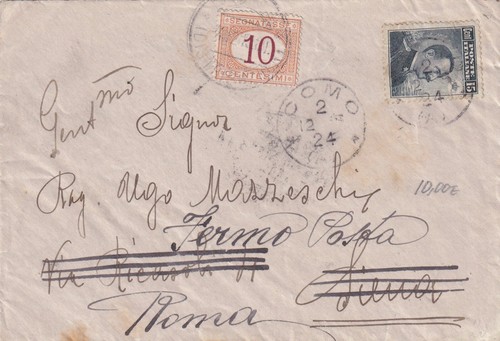 SEGNATASSE
10
CENTESIMI
POSTE ITALIANE
CENT 15
COMO
2
12
24
12
24
Gent.mo Signor
Rag. Ugo Marzeschi
Fermo Posta
Via Ricasoli
Siena
Roma
10,00€